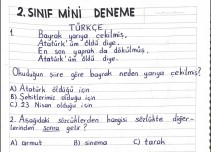 2. SINIF MİNİ DENEME
TÜRKÇE
1. Bayrak yarıya çekilmiş,
Atatürk'üm öldü diye.
En son yaprak da dökülmüş,
Atatürk'üm öldü diye.
Okuduğun şiire göre bayrak neden yarıya çekilmiş?
A) Atatürk öldüğü için
B) Şehitlerimiz olduğu için
C) 23 Nisan olduğu için
2. Aşağıdaki sözcüklerden hangisi sözlükte diğer-
lerinden sonra gelir?
A) armut B) sinema C) tarak